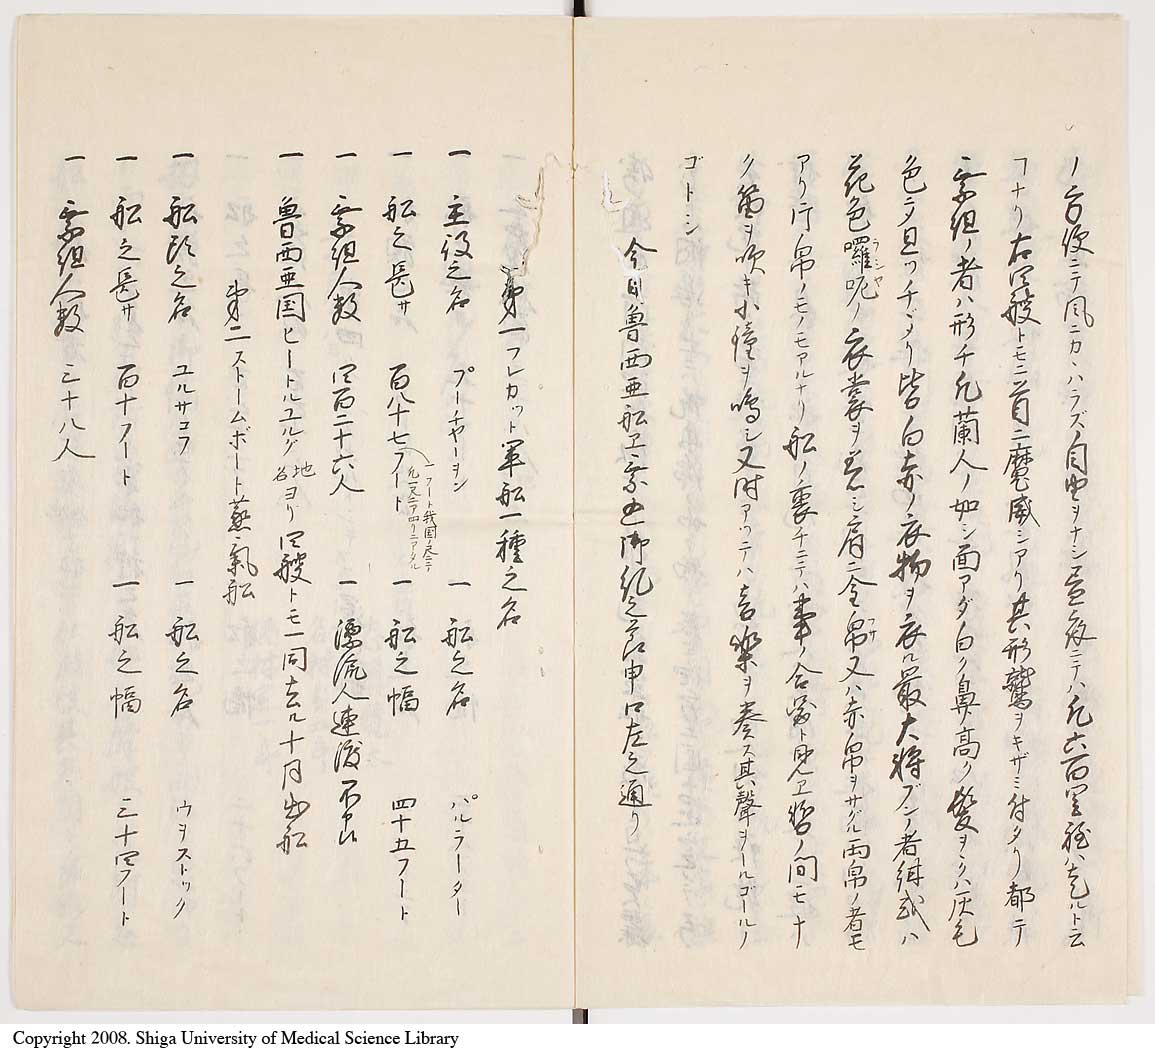 ノ方便ニテ風ニカヽハラズノ自由ヲナシ昼夜ニテハ凡六百里程ハ走ルト云
フナリ右四艘トモニ首ニ魔威シアリ其形鷲ヲキザミ付タリ都テ
乗組ノ者ハ形チ凡蘭人ノ如シ面アダ白ク鼻高ク髪ヲクハ灰毛
色ニタ且ツチヾリ皆白赤ノ衣物ヲ衣ル最大将ブンノ者紺或ハ
花色囉呢ノ衣裳ヲ着シ肩ニ金帛又ハ赤帛ヲサグル両帛ノ者モ
ラシヤ
フサ
アリ片帛ノモノモアルナリ船ノ裏チニテハ事ノ合図ト見ヱ暫ノ間モナ
ク笛ヲ吹キ小鐘ヲ鳴シ又時アツテハ音楽ヲ奏ス其聲ヲールゴールノ
ゴトシ
今日魯西亜船ヱ乗込御糺之節申口左之通リ
第一フレカット軍船一種之名
一 主役之名 プーチヤーヨン 一 船之名 パルラーター
一 船之長サ 百八十七フート 一 船之幅 四十五フート
一フート我国ノ尺ニテ
凡一尺ニア四リニアタル
一 乗組人数 四百二十六人 一 漂流人連渡不申
一 魯西亜国ヒートルユルグ地名ヨリ四艘トモ一同去ル十月出船
第二ストームボート蒸気船
一 船頭之名 ユルサコフ 一 船之名 ウヲストック
一 船之長サ 百十フート 一 船之幅 二十四フート
一 乗組人数 三十八人
Copyright 2008. Shiga University of Medical Science Library